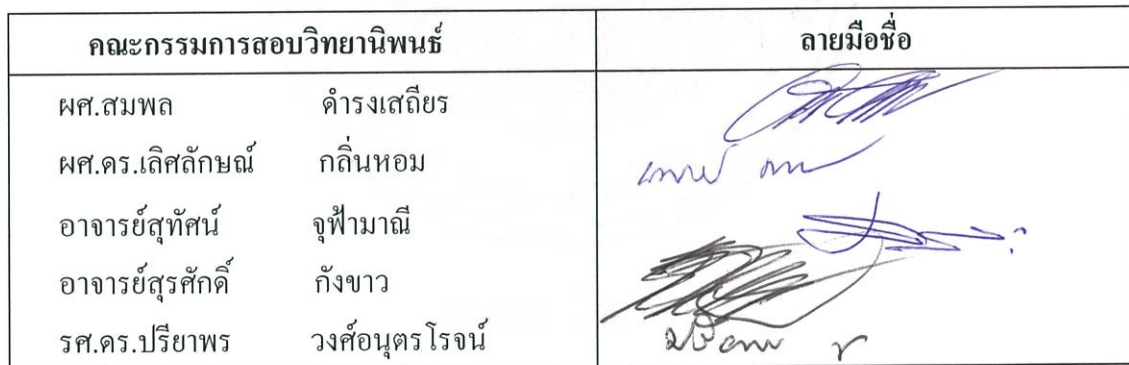 คณะกรรมการสอบวิทยานิพนธ์ ลายมือชื่อ
ผศ.สมพล ดำรงเสถียร
ผศ.ดร.เลิศลักษณ์ กลิ่นหอม
อาจารย์สุทัศน์ จุฟ้ามาณี
อาจารย์สุรศักดิ์ กังขาว
รศ.ดร.ปรียาพร วงศ์อนุตรโรจน์